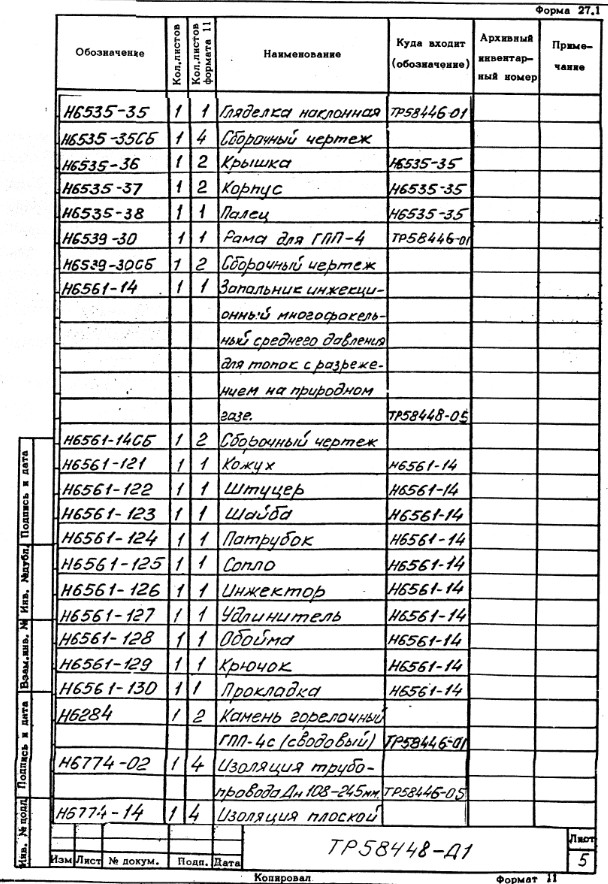 Форма 27.1
Обозначение Кол.листов Кол.листов формата 11 Наименование Куда входит (обозначение) Архивный инвентарный номер Примечание
Н6535-35 1 1 Гляделка наклонная ТР58446-01
Н6535-35СБ 1 4 Сборочный чертеж
Н6535-36 1 2 Крышка Н6535-35
Н6535-37 1 2 Корпус Н6535-35
Н6535-38 1 1 Палец Н6535-35
Н6539-30 1 1 Рама для ГПП-4 ТР58446-01
Н6539-30СБ 1 2 Сборочный чертеж
Н6561-14 1 1 Запальник инжекци-
онный многофакель-
ный среднего давления
для топок с разреже-
нием на природном
газе. ТР58448-05
Н6561-14СБ 1 2 Сборочный чертеж
Н6561-121 1 1 Кожух Н6561-14
Н6561-122 1 1 Штуцер Н6561-14
Н6561-123 1 1 Шайба Н6561-14
Н6561-124 1 1 Патрубок Н6561-14
Н6561-125 1 1 Сопло Н6561-14
Н6561-126 1 1 Инжектор Н6561-14
Н6561-127 1 1 Удлинитель Н6561-14
Н6561-128 1 1 Обойма Н6561-14
Н6561-129 1 1 Крючок Н6561-14
Н6561-130 1 1 Прокладка Н6561-14
Н6284 1 2 Камень горелочный
ГПП-4с (сводовый) ТР58446-01
Н6774-02 1 4 Изоляция трубо-
провода Дн 108-245мм. ТР58446-05
Н6774-14 1 4 Изоляция плоской
Инв. №подл Подпись и дата Взам.инв. № Инв. №дубл. Подпись и дата
ТР58448-Д1
Лист
5
Изм Лист № докум. Подп. Дата
Копировал Формат 11